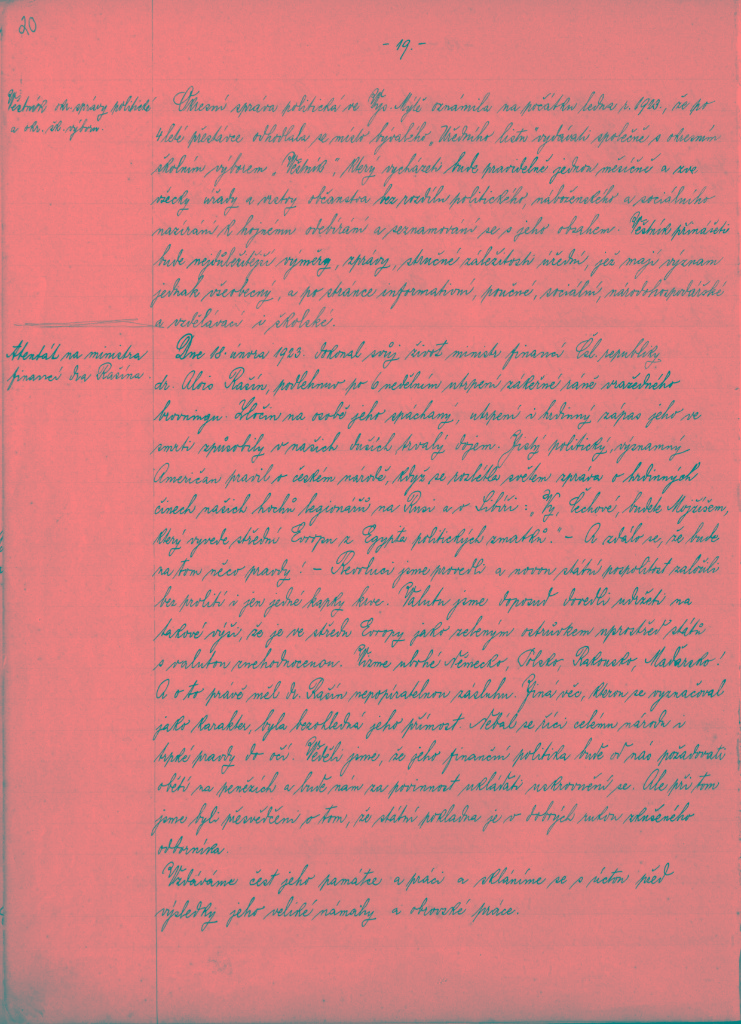 20
- 19. -
Věstník okr. správy politické
a okr. šk. výboru.
Okresní správa politická ve Vys. Mýtě oznámila na počátku ledna r. 1923., že po
4 leté přestávce odhodlala se místo bývalého „Úředního listu" vydávati společně s okresním
školním výborem „Věstník", který vycházeti bude pravidelně jednou měsíčně a zve
všecky úřady a vrstvy občanstva bez rozdílu politického, náboženského a sociálního
nazírání k hojnému odebírání a seznamování se s jeho obsahem. Věstník přinášeti
bude nejdůležitější výměry, zprávy, stručné záležitosti úřední, jež mají význam
jednak všeobecný, a po stránce informativní, poučné, sociální, národohospodářské
a vzdělávací i školské.
Atentát na ministra
financí dra Rašína.
Dne 18. února 1923. dokonal svůj život ministr financí Čsl. republiky
dr. Alois Rašín, podlehnuv po 6 nedělním utrpení zákeřné ráně vražedného
browningu. Zločin na osobě jeho spáchaný, utrpení i hrdinný zápas jeho ve
smrti způsobily v našich duších trvalý dojem. Jistý politický, významný
Američan pravil o českém národě, když se rozlétla světem zpráva o hrdinných
činech našich hochů legionářů na Rusi a v Sibíři: „Vy, Čechové, budete Mojžíšem,
který vyvede střední Evropu z Egypta politických zmatků." - A zdálo se, že bude
na tom něco pravdy! - Revoluci jsme provedli a novou státní pospolitost založili
bez prolití i jen jedné kapky krve. Valutu jsme doposud dovedli udržeti na
takové výši, že je ve středu Evropy jako zeleným ostrůvkem uprostřed států
s valutou znehodnocenou. Vizme ubohé Německo, Polsko, Rakousko, Maďarsko!
A o to právě měl dr. Rašín nepopíratelnou zásluhu. Jiná věc, kterou se vyznačoval
jako karakter, byla bezohledná jeho přímost. Nebál se říci celému národu i
trpké pravdy do očí. Věděli jsme, že jeho finanční politika bude od nás požadovati
obětí na penězích a bude nám za povinnost ukládati uskrovnění se. Ale při tom
jsme byli přesvědčeni o tom, že státní pokladna je v dobrých rukou zkušeného
odborníka.
Vzdáváme čest jeho památce a práci a skláníme se s úctou před
výsledky jeho veliké námahy a obrovské práce.